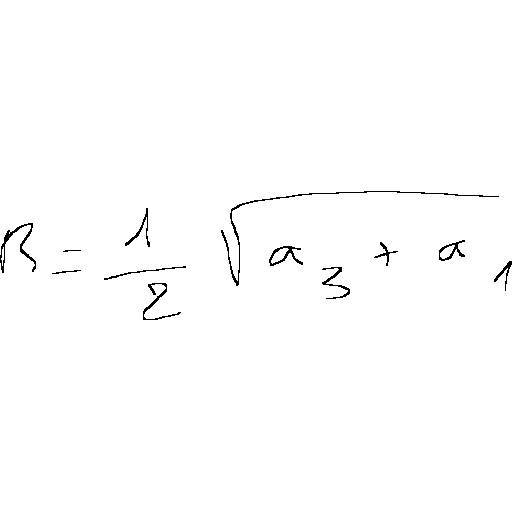 B = \frac{1}{2} \sqrt{a_3 + a_1}